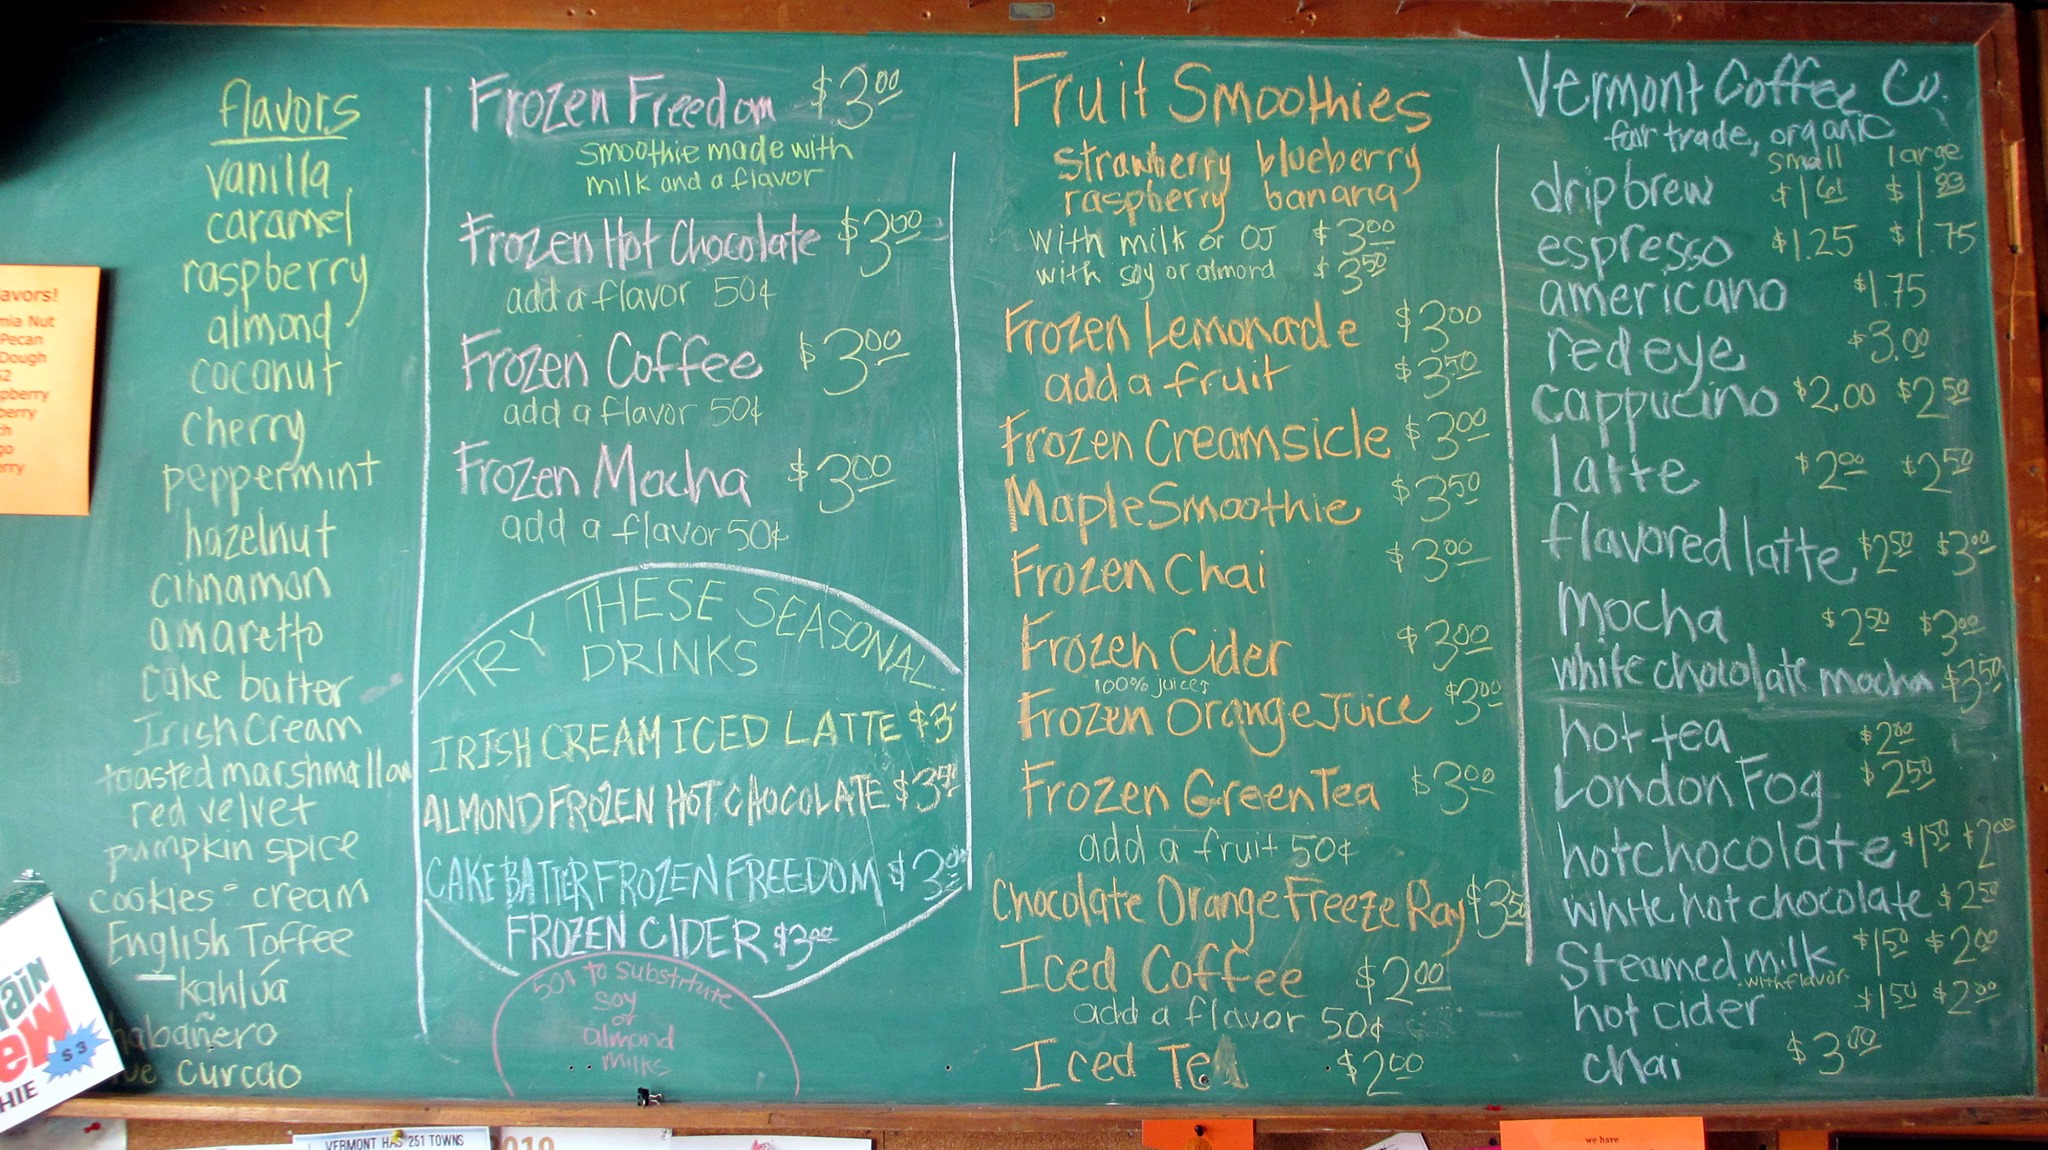 flavors
vanilla
caramel
raspberry
almond
coconut
cherry
peppermint
hazelnut
cinnamon
amaretto
cake batter
Irish Cream
toasted marshmallow
red velvet
pumpkin spice
cookies - cream
English Toffee
kahlúa
habañero
curcao
Frozen Freedom $3.00
smoothie made with
milk and a flavor
Frozen Hot Chocolate $3.00
add a flavor 50¢
Frozen Coffee $3.00
add a flavor 50¢
Frozen Mocha $3.00
add a flavor 50¢
TRY THESE SEASONAL
DRINKS
IRISH CREAM ICED LATTE $3
ALMOND FROZEN HOT CHOCOLATE $3.50
CAKE BATTER FROZEN FREEDOM $3.00
FROZEN CIDER $3.00
50¢ to substitute
soy
or
almond
milks
Fruit Smoothies
strawberry blueberry
raspberry banana
with milk or OJ $3.00
with soy or almond $3.50
Frozen Lemonade $3.00
add a fruit $3.50
Frozen Creamsicle $3.00
Maple Smoothie $3.50
Frozen Chai $3.00
Frozen Cider $3.00
100% juices
Frozen Orange Juice $3.00
Frozen Green Tea $3.00
add a fruit 50¢
Chocolate Orange Freeze Ray $3.50
Iced Coffee $2.00
add a flavor 50¢
Iced Tea $2.00
Vermont Coffee Co.
fair trade, organic
small large
drip brew $1.61 $1.83
espresso $1.25 $1.75
americano $1.75
red eye $3.00
cappucino $2.00 $2.50
latte $2.00 $2.50
flavored latte $2.50 $3.00
mocha $2.50 $3.00
white chocolate mocha $3.50
hot tea $2.00
London Fog $2.50
hot chocolate $1.50 $2.00
white hot chocolate $2.50
Steamed milk $1.50 $2.00
with flavor
hot cider $1.50 $2.00
chai $3.00
avors!
mia Nut
Pecan
Dough
$3
HIE
VERMONT HAS 251 TOWNS
2010
we have